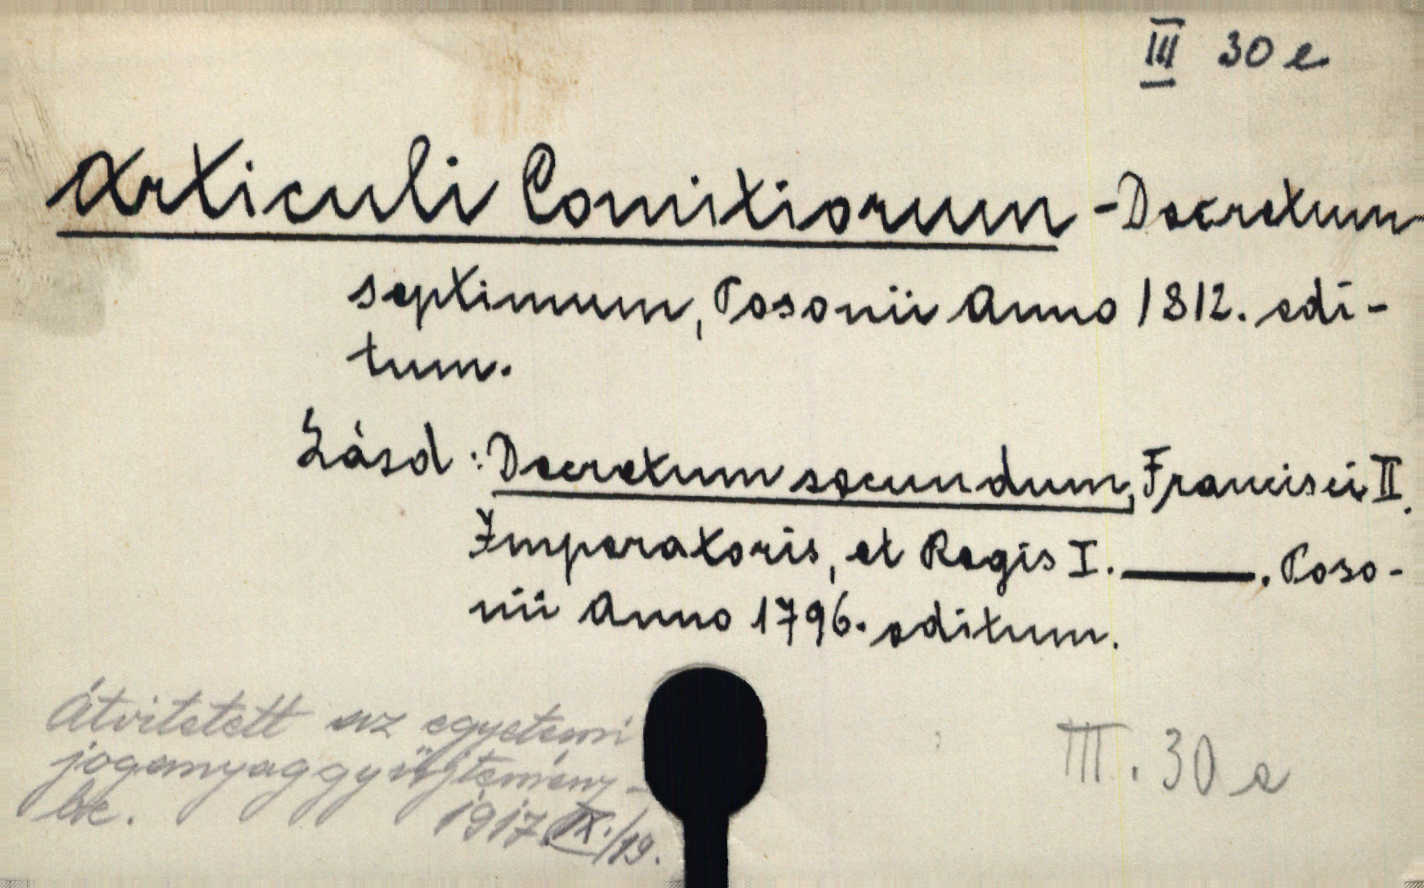 III 30 e
Articuli Comitiorum - Decretum
septimum, Posonii Anno 1812. edi-
tum.
Lásd: Decretum secundum, Francisci II.
Imperatoris, et Regis I. ———. Poso-
nii Anno 1796. editum.
Átvitetett az egyetemi
joganyaggyűjtemény-
be. 1917. IX./19.
III. 30 e